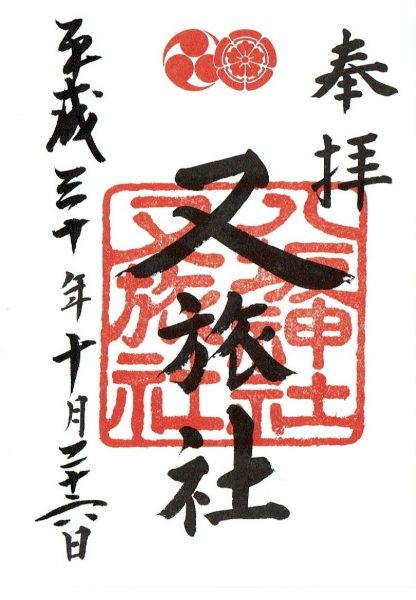 奉拝
又旅社
平成三十年十月二十六日
八坂神社
又旅社